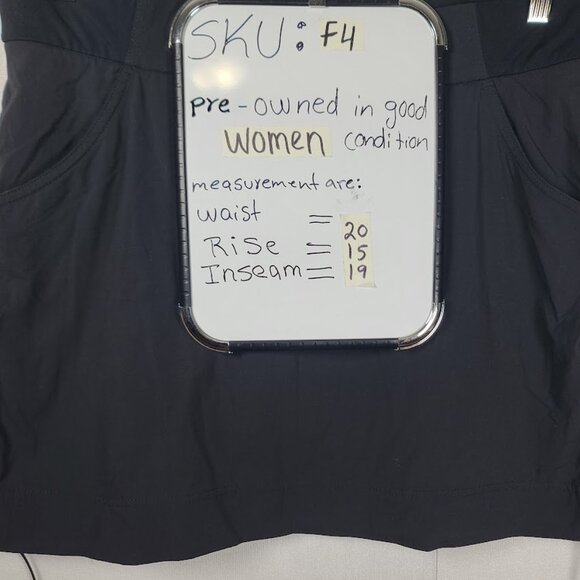 SKU: F4
pre-owned in good
women condition
measurement are:
waist = 20
Rise = 15
Inseam = 19